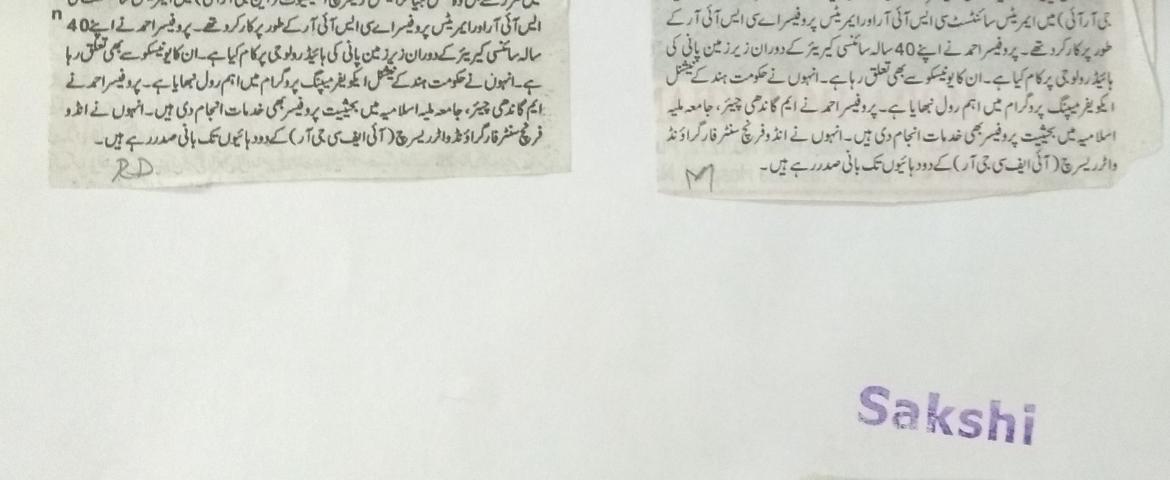 ایس آئی آر اور ایمریٹس پروفیسر اے سی ایس آئی آر کے طور پر کار کرد تھے۔ پروفیسر احمد نے اپنے 40
سالہ سائنسی کیریئر کے دوران زیر زمین پانی کی ہائیڈرولوجی پر کام کیا ہے۔ ان کا یونیسکو سے بھی تعلق رہا
ہے۔ انہوں نے حکومت ہند کے نیشنل ایکویفر میپنگ پروگرام میں اہم رول نبھایا ہے۔ پروفیسر احمد نے
ایم گاندھی چیئر، جامعہ ملیہ اسلامیہ میں بحیثیت پروفیسر بھی خدمات انجام دی ہیں۔ انہوں نے انڈو
فرنچ سنٹر فار گراؤنڈ واٹر ریسرچ (آئی ایف سی جی آر) کے دو دہائیوں تک بانی صدر رہے ہیں۔
RD
n
جی آر آئی) میں ایمریٹس سائنٹسٹ سی ایس آئی آر اور ایمریٹس پروفیسر اے سی ایس آئی آر کے
طور پر کار کرد تھے۔ پروفیسر احمد نے اپنے 40 سالہ سائنسی کیریئر کے دوران زیر زمین پانی کی
ہائیڈرولوجی پر کام کیا ہے۔ ان کا یونیسکو سے بھی تعلق رہا ہے۔ انہوں نے حکومت ہند کے نیشنل
ایکویفر میپنگ پروگرام میں اہم رول نبھایا ہے۔ پروفیسر احمد نے ایم گاندھی چیئر، جامعہ ملیہ
اسلامیہ میں بحیثیت پروفیسر بھی خدمات انجام دی ہیں۔ انہوں نے انڈو فرنچ سنٹر فار گراؤنڈ
واٹر ریسرچ (آئی ایف سی جی آر) کے دو دہائیوں تک بانی صدر رہے ہیں۔
M
Sakshi